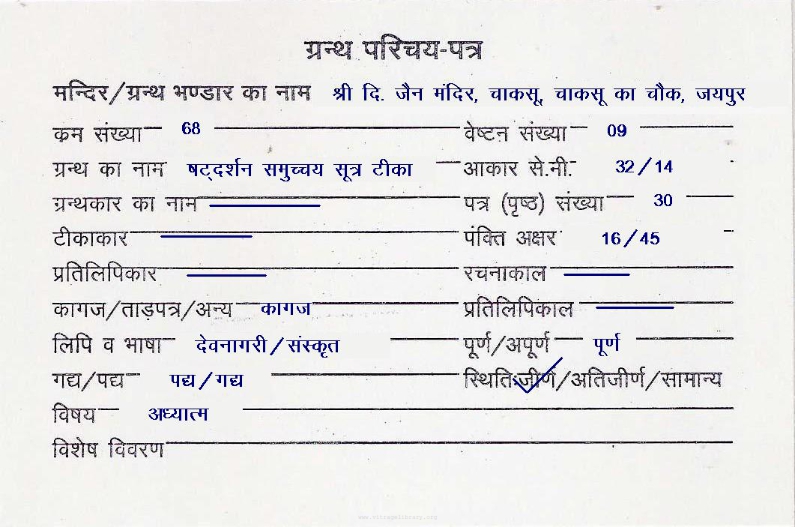 ग्रन्थ परिचय-पत्र
मन्दिर/ग्रन्थ भण्डार का नाम श्री दि. जैन मंदिर, चाकसू, चाकसू का चौक, जयपुर
कम संख्या 68 वेष्टन संख्या 09
ग्रन्थ का नाम षट्दर्शन समुच्चय सूत्र टीका आकार से.मी. 32/14
ग्रन्थकार का नाम पत्र (पृष्ठ) संख्या 30
टीकाकार पंक्ति अक्षर 16/45
प्रतिलिपिकार रचनाकाल
कागज/ताड़पत्र/अन्य कागज प्रतिलिपिकाल
लिपि व भाषा देवनागरी/संस्कृत पूर्ण/अपूर्ण पूर्ण
गद्य/पद्य पद्य/गद्य स्थितिःजीर्ण/अतिजीर्ण/सामान्य
विषय अध्यात्म
विशेष विवरण